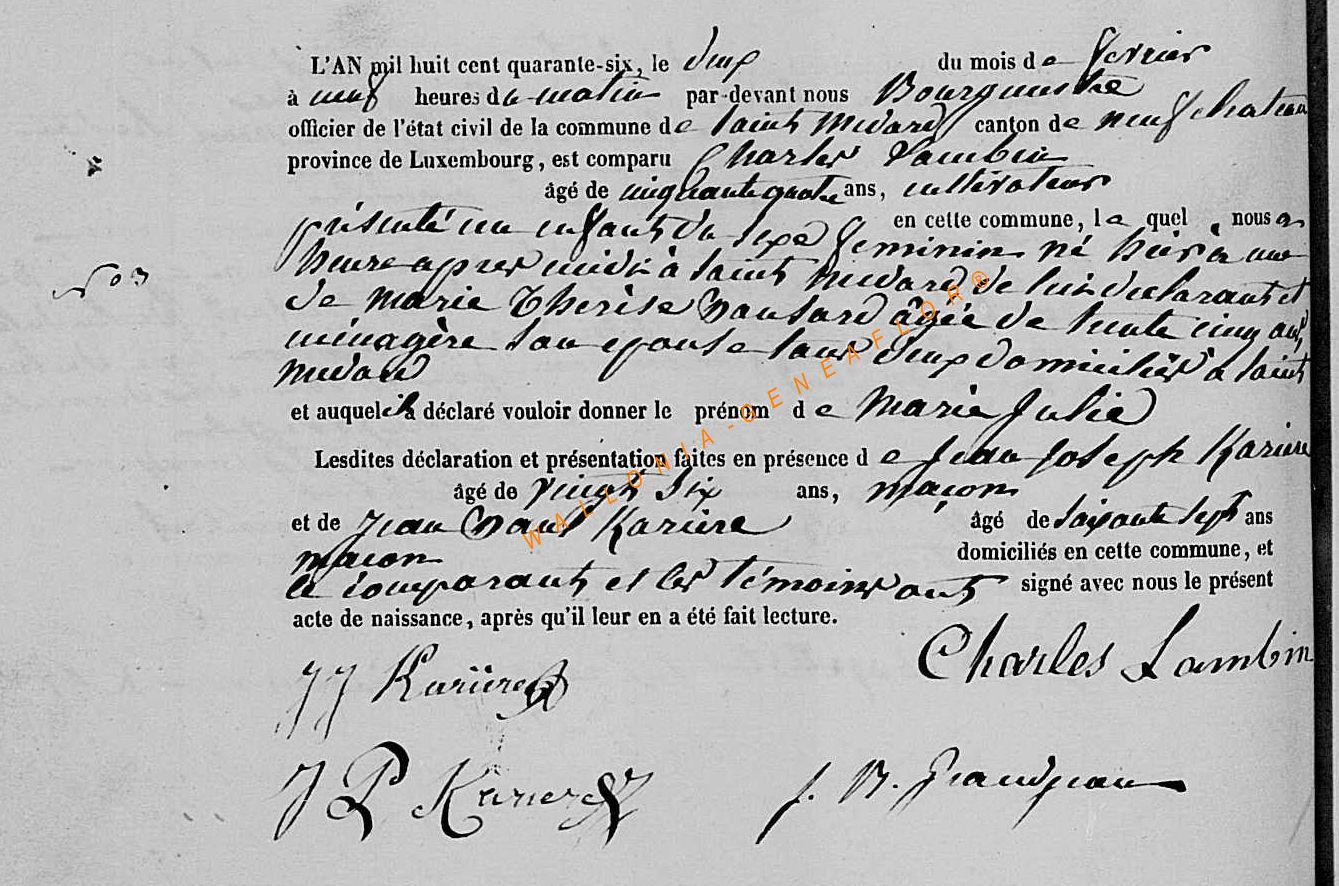 L'AN mil huit cent quarante-six, le deux du mois de fevrier
à neuf heures du matin par-devant nous Bourguestre
officier de l'état civil de la commune de Saint Medard canton de neufchateau
province de Luxembourg, est comparu Charles Lambin
âgé de cinquante quatre ans, cultivateur
en cette commune, le quel nous a
présenté un enfant du sexe feminin né hier à une
heure apres midi à Saint Medard de lui declarant et
de Marie Therèse agée de trente cinq ans
ménagère son epouse tous deux domiciliés à Saint
Medard
et auquel il a déclaré vouloir donner le prénom de Marie Julie
Lesdites déclaration et présentation faites en présence de Jean Joseph Kariere
âgé de vingt six ans, maçon
et de Jean Paul Kariere âgé de soixante sept ans
maçon domiciliés en cette commune, et
le comparant et les témoins ont signé avec nous le présent
acte de naissance, après qu'il leur en a été fait lecture.
No 3
JJ Kariere
Charles Lambin
J P Kariere
J. N. Grandjean
WALLONIA-GENEAFLOR®